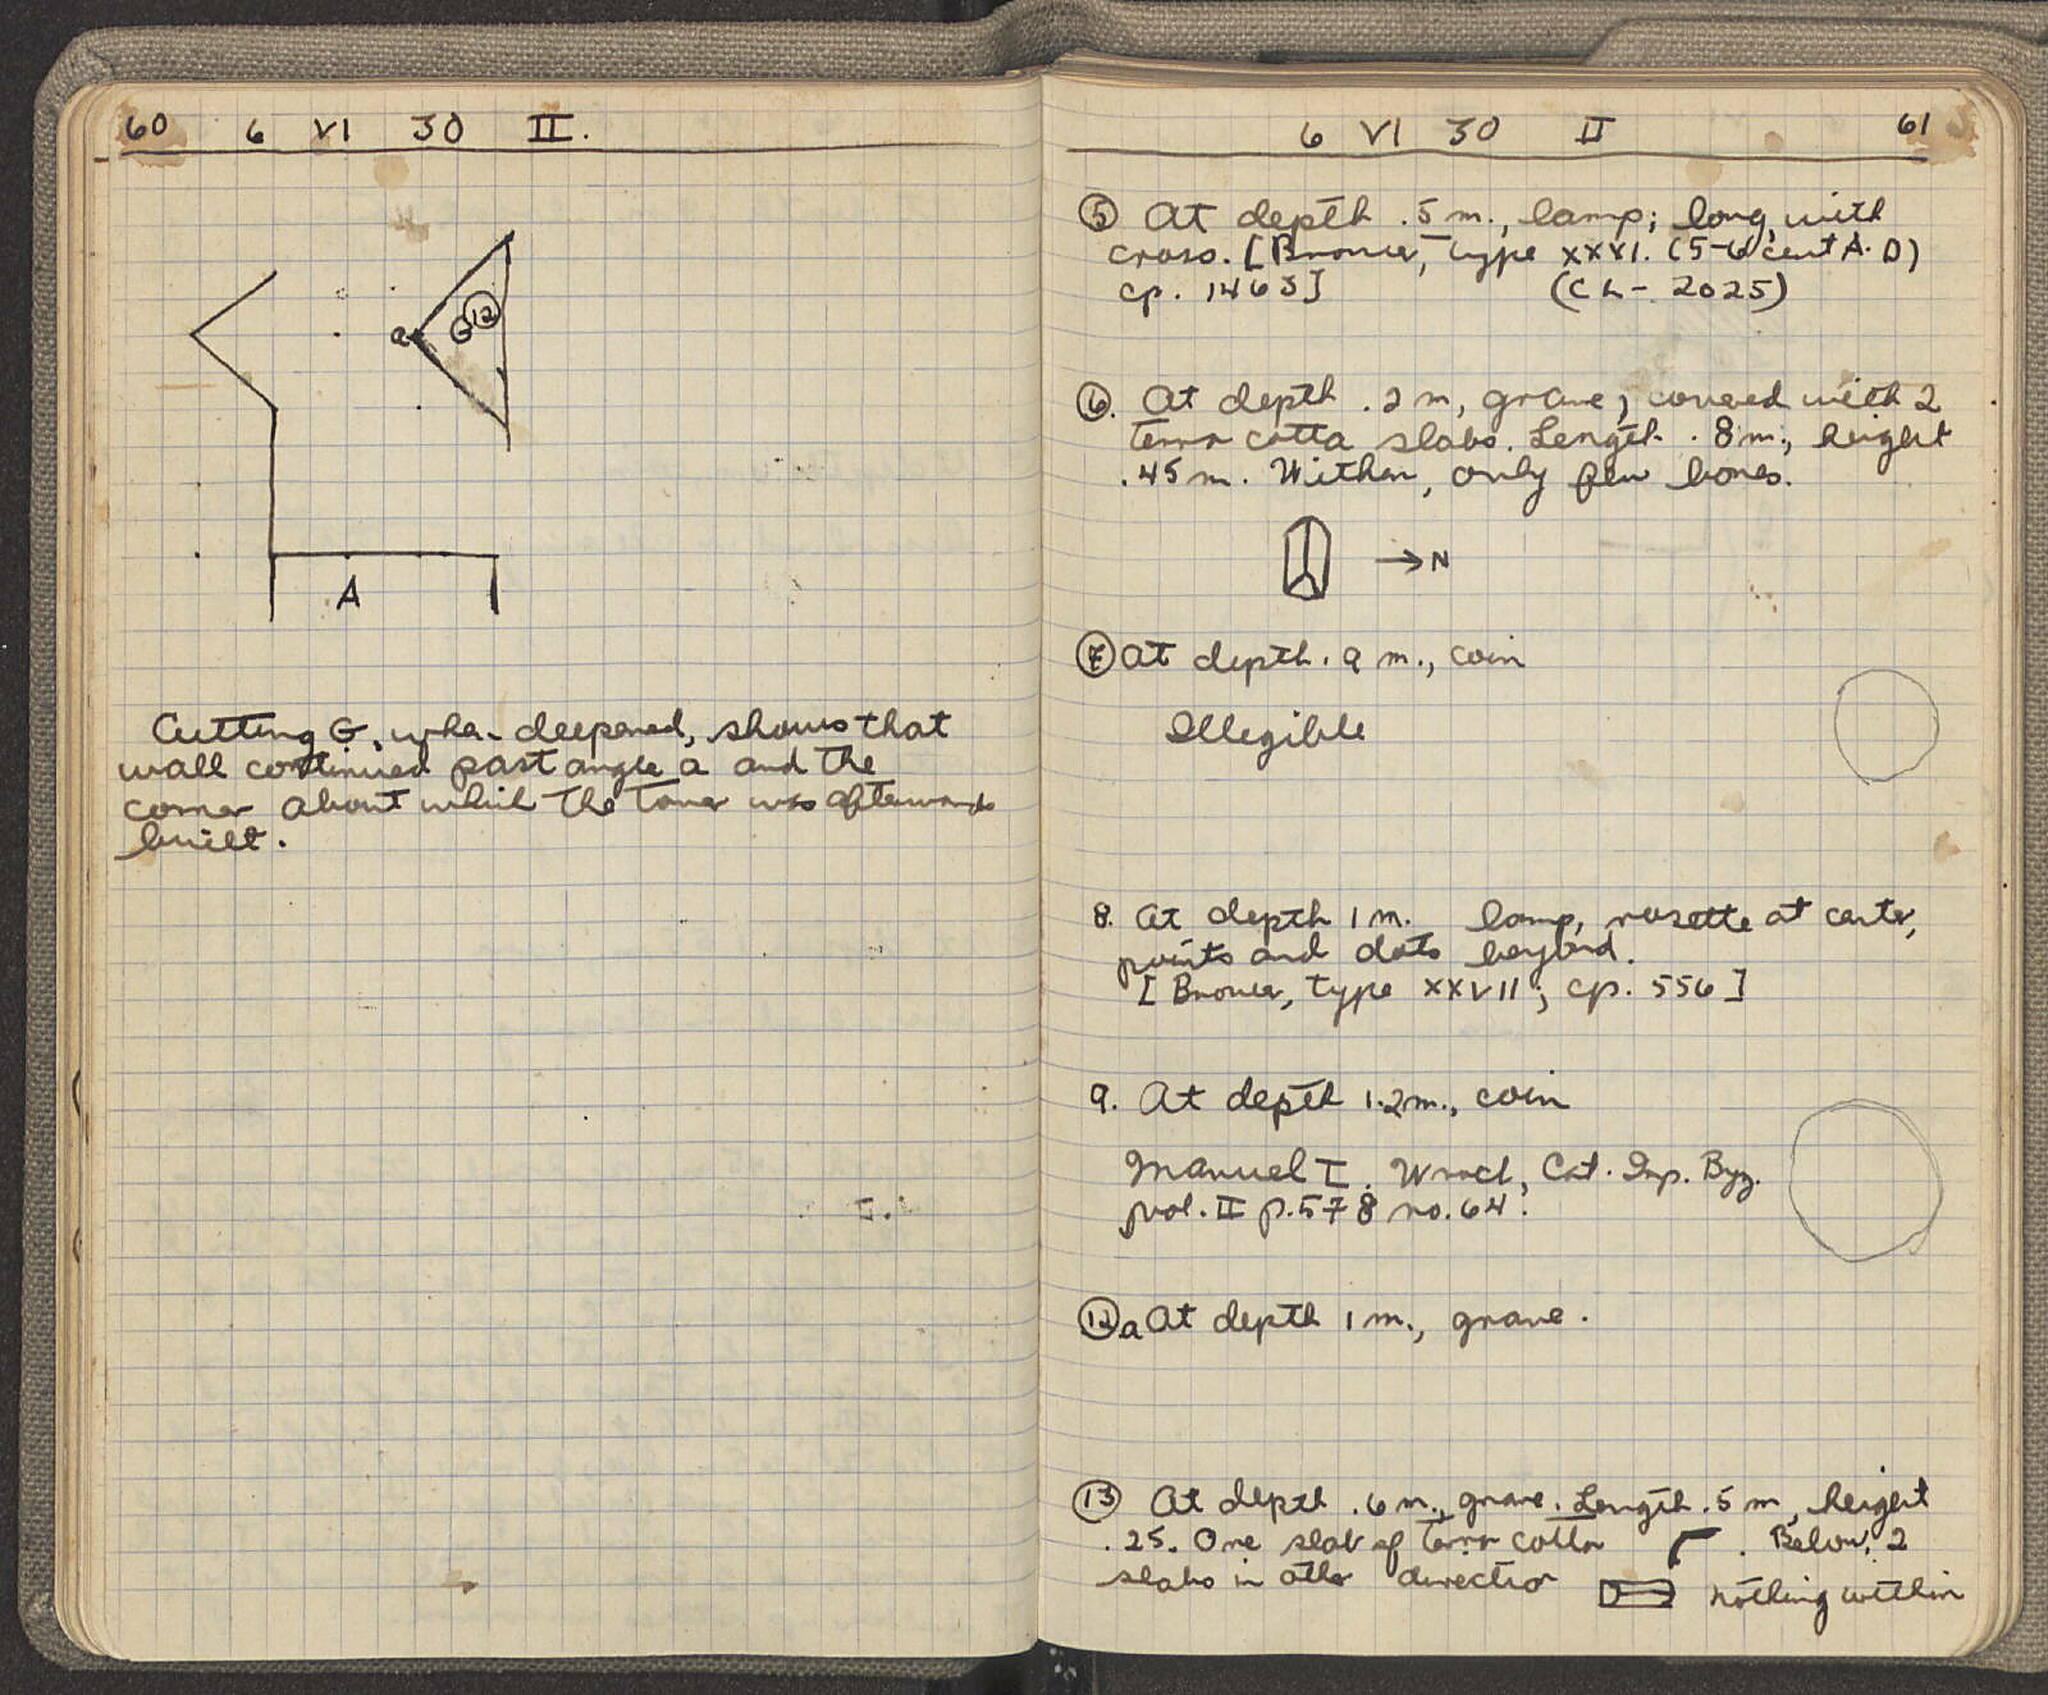 60 6 VI 30 II.
a G 12
A
Cutting G, when deepened, shows that
wall continued past angle a and the
corner about which the tower was afterwards
built.
6 VI 30 II 61
5 At depth .5 m., lamp; long, with
cross. [Broneer, type XXXI. (5-6 cent A.D)
cp. 1463] (CL- 2025)
6. At depth .2 m, grave; covered with 2
terra cotta slabs. Length .8 m., height
.45 m. Within, only few bones.
→N
7 At depth .9 m., coin
Illegible
8. At depth 1 m. lamp, rosette at center,
points and dots beyond.
[Broneer, type XXVII; cp. 556]
9. At depth 1.2 m., coin
Manuel I. Wroth, Cat. Imp. Byz.
vol. II p. 578 no. 64.
12a At depth 1 m., grave.
13 At depth .6 m., grave. Length .5 m, height
.25. One slab of terra cotta . Below, 2
slabs in other direction nothing within